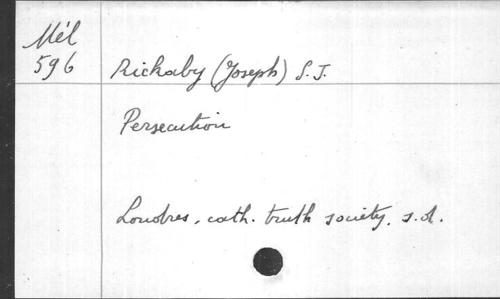 Mél
596
Rickaby (Joseph) S.J.
Persecution
Londres, cath. truth society, s.d.